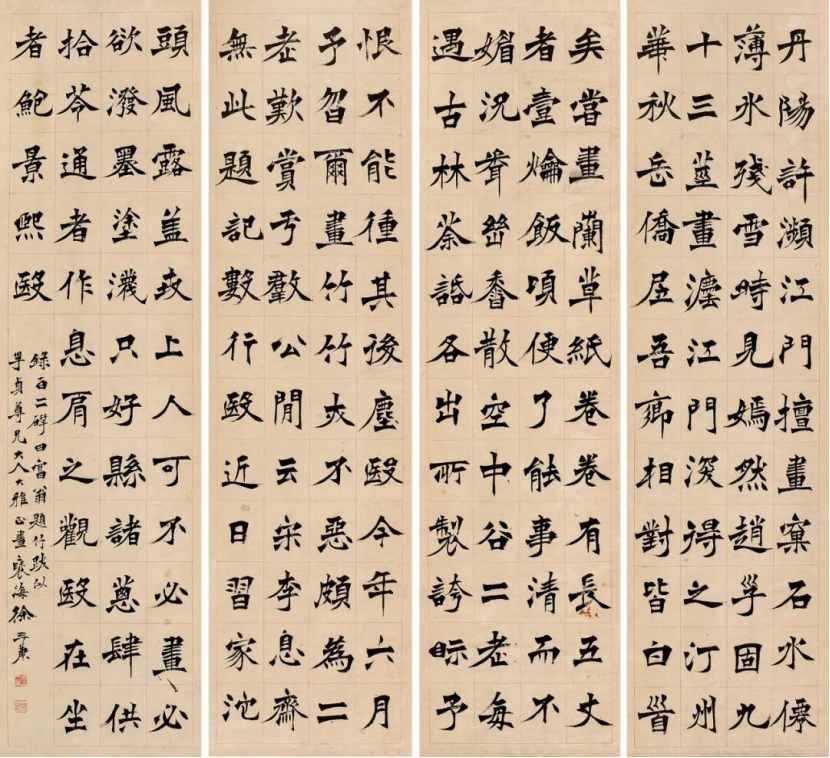 丹陽許瀕江門擅畫窠石水僊
薄氷殘雪時見嫣然趙子固九
十三莖畫灋江門深得之汀州
華秋岳僑居吾鄉相對皆白首
矣嘗畫蘭草紙卷卷有長五丈
者壹爚飯頃便了能事清而不
媚況聳嵒香散空中谷二老每
遇古林茶話各出所製誇眎予
恨不能徸其後塵殹今年六月
予曶爾畫竹竹亦不惡頗為二
老歎賞亏羣公閒云宋李息齋
無此題記數行殹近日習家池
頭風露蓋上人可不必畫必
欲潑墨塗只好縣諸蔥肆供
拾苓通者作息肩之觀殹在坐
者鮑景熙殹
錄百二硯田富翁題竹跋似
子貞尊兄大人大雅正畫褎海徐三庚